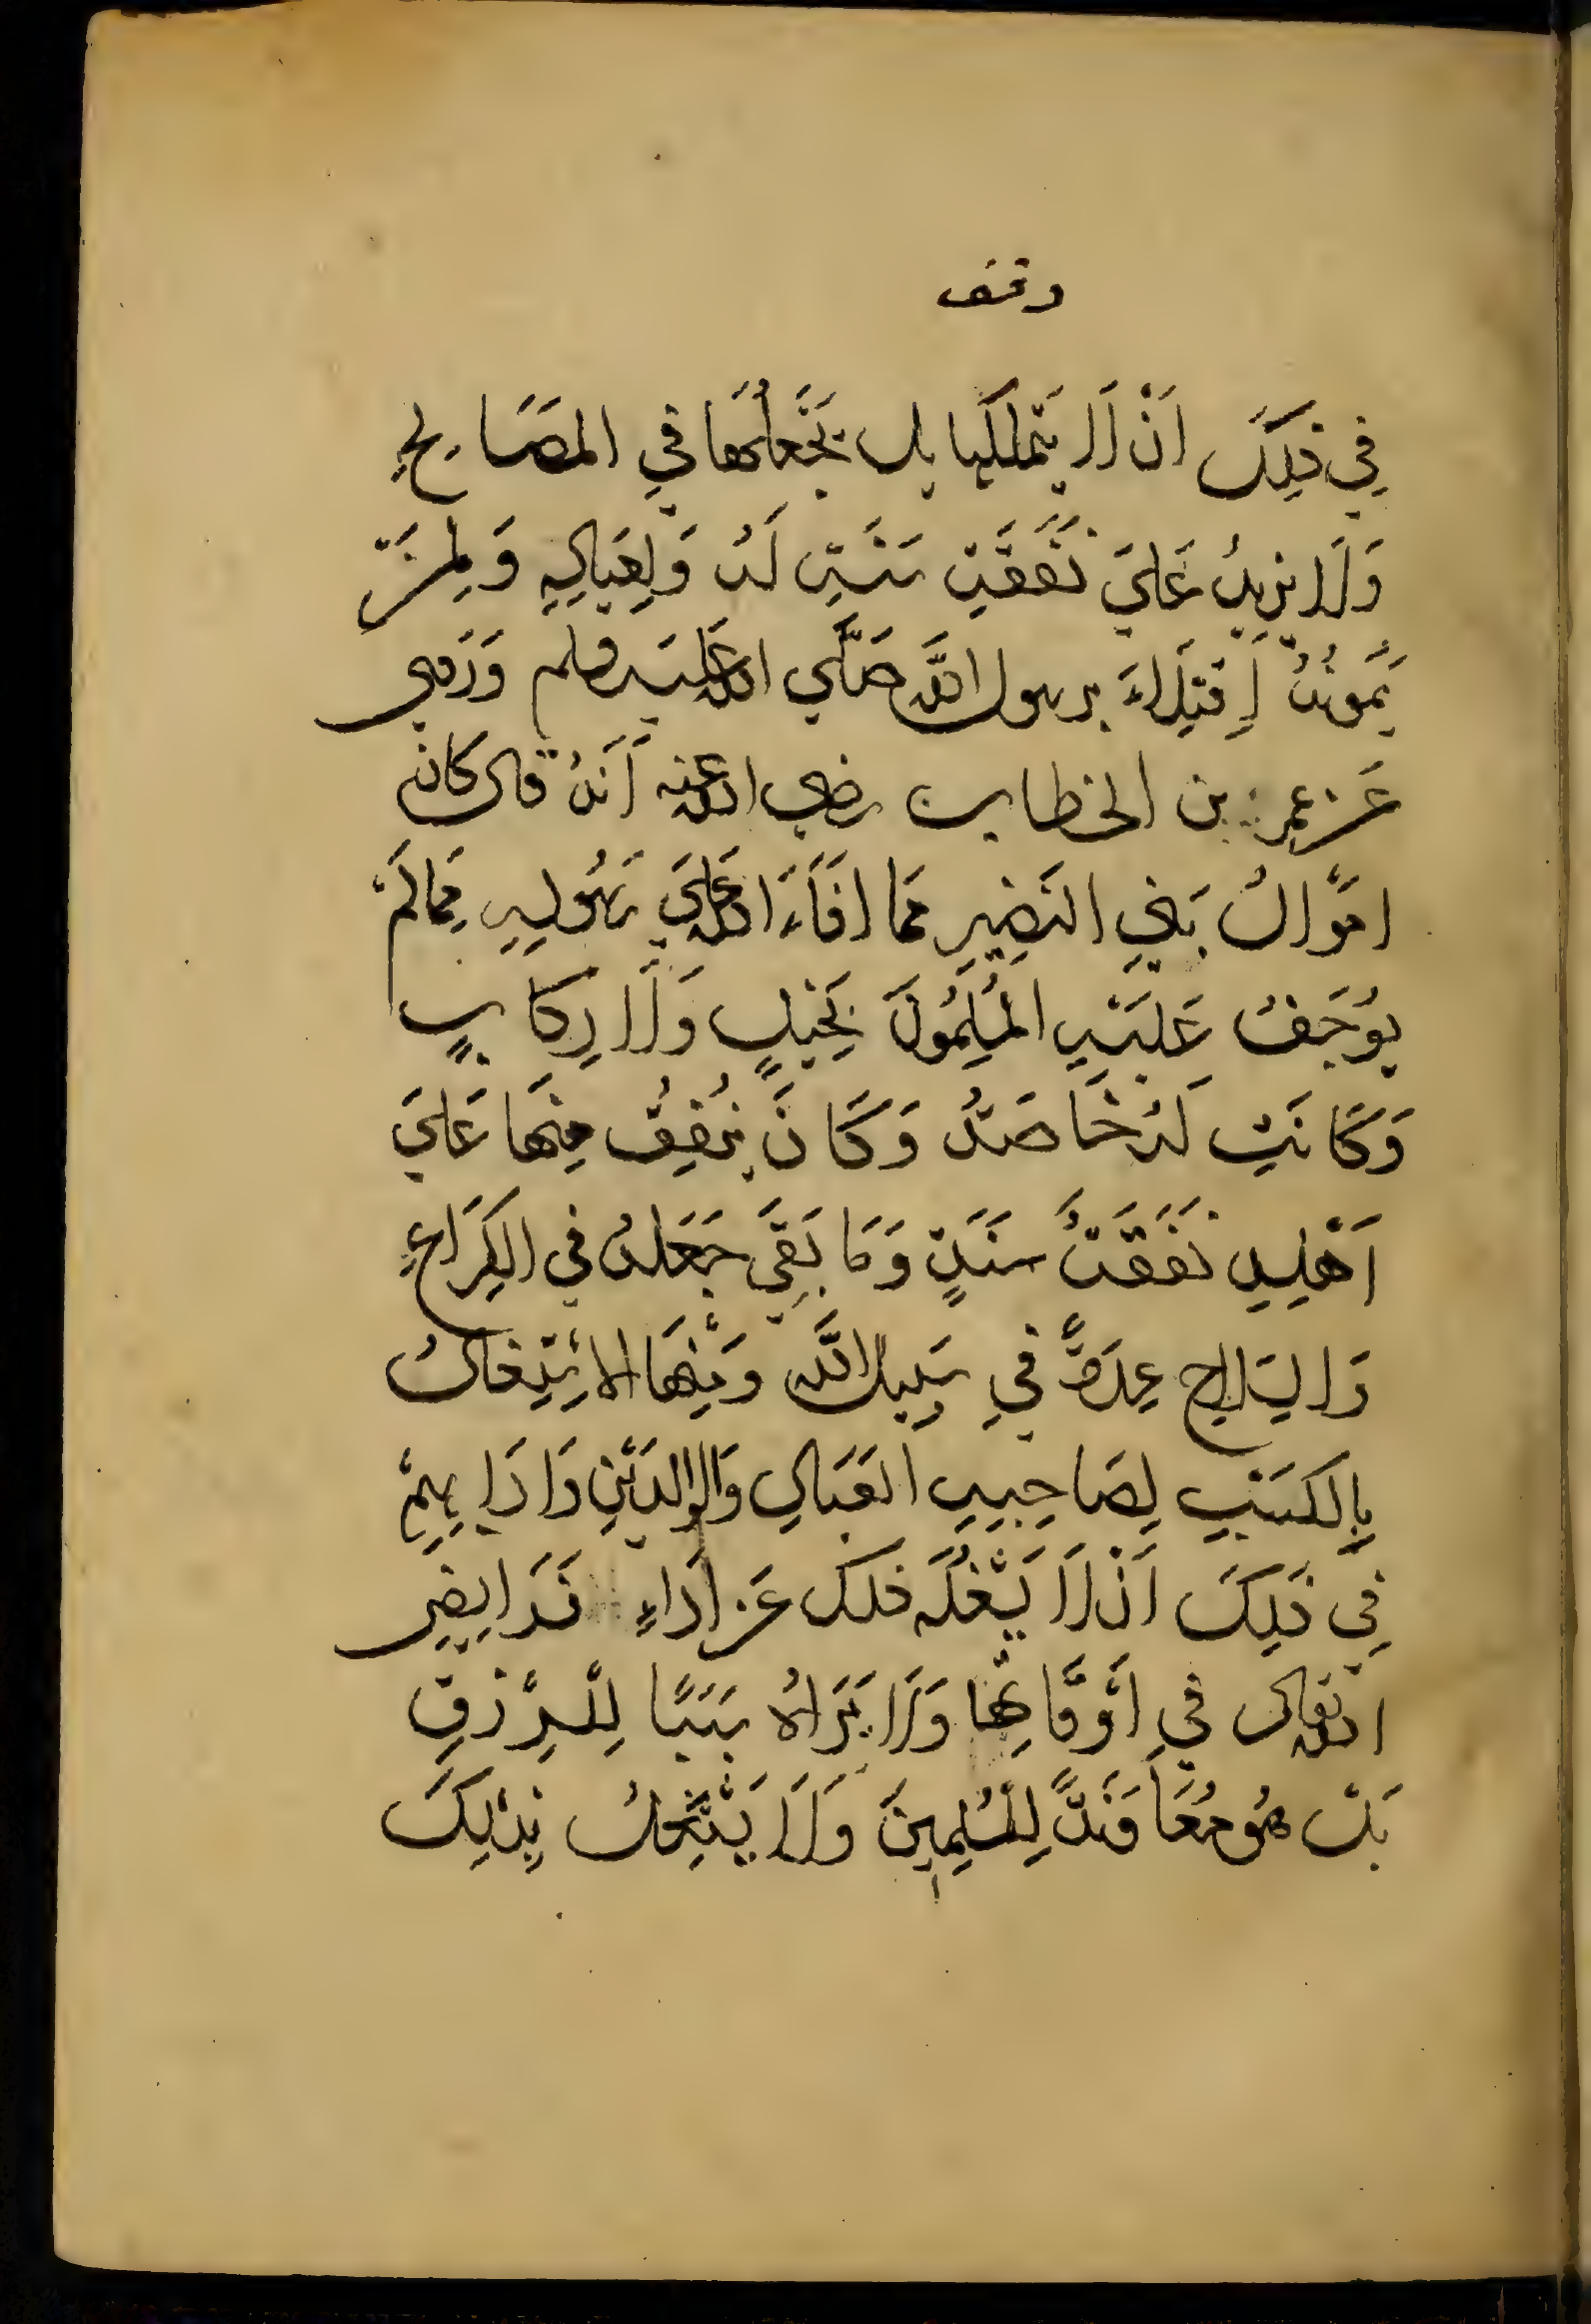 وقف
فِي ذَلِكَ اَنْ لَا يَتَملَّكَها بل يَجْعَلُهَا فِي المَصَالِحِ
وَلَا يَزِيدُ عَلَي نَفَقَةِ سَنَةٍ لَهُ وَلِعِيَالِهِ وَلِمَنْ
يَمُونُهُ اِقْتِدَاءً برسول اللَّه صَلَّي الله عليه وسلم وَرَوي
عَن عمر بن الخطاب رضي الله عنه اَنَّهُ قال كان
اَمْوَالُ بَنِي النَضِيرِ مَما اَفَاءَ الله عَلَي رَسُولِهِ مِمَا لَمْ
يُوجَفْ عَلَيْهِ المُسْلِمُونَ بِخَيْلٍ وَلَا رِكَابٍ
وَكَانَتْ لَهُ خَاصَةً وَكَانَ يُنْفِقُ مِنْهَا عَلَي
اَهْلِهِ نَفَقَةَ سَنَةٍ وَمَا بَقِيَ جَعَلَهُ فِي الكِرَاعِ
وَالسِلَاحِ عِدَةً فِي سَبِيل اللَّه وَمِنْهَا الاِشْتِغَالُ
بِالكَسْبِ لِصَاحِبِ العِيَالِ وَالوَالِدَيْنِ وَادَابِهِمْ
فِي ذَلِكَ اَنْ لَا يَشْغَلَهُ ذلك عَن اَدَاءِ فَرَايِضِ
الله تعالى فِي اَوْقَاتِهَا وَلَا يَرَاهُ سَبَبًا لِلْرِزْقِ
بَلْ هُو مُعَاوَنَةً لِلْمُسْلِمِينَ وَلَا يَشْتَغِلُ بِذَلِكَ